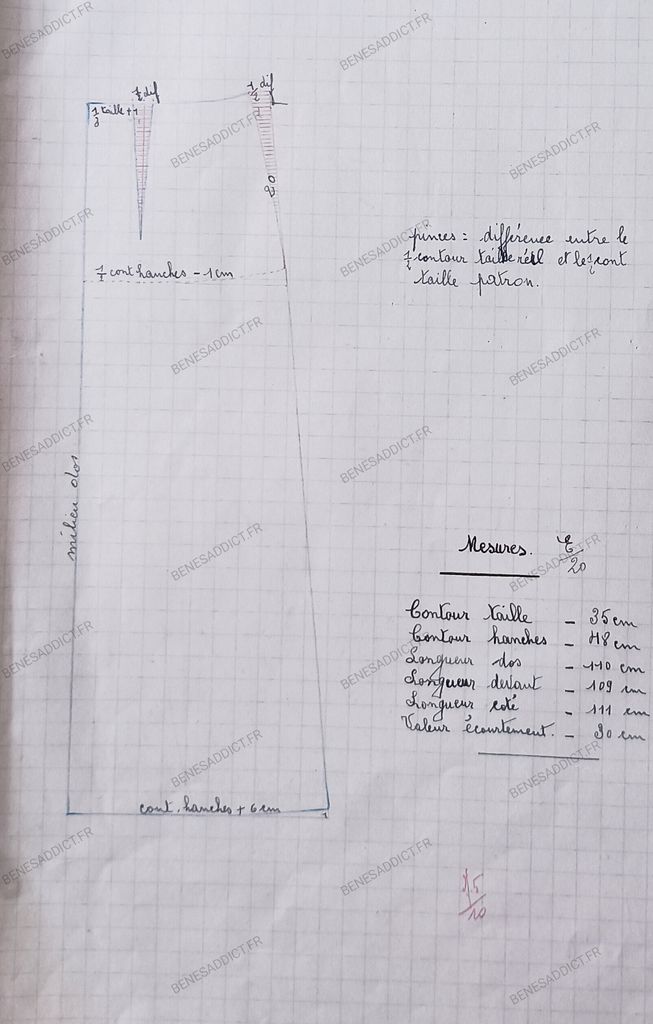 1/2 dif
1/2 dif
1/2 taille + 1
pinces : différence entre le
1/2 contour taille réel et le 1/2 cont
taille patron.
1/2 cont hanches - 1 cm
milieu dos
Mesures.
20
Contour taille - 35 cm
Contour hanches - 48 cm
Longueur dos - 110 cm
Longueur devant - 109 cm
Longueur coté - 111 cm
Valeur écourtement. - 90 cm
cont. hanches + 6 cm
1
10
BENESADDICT.FR